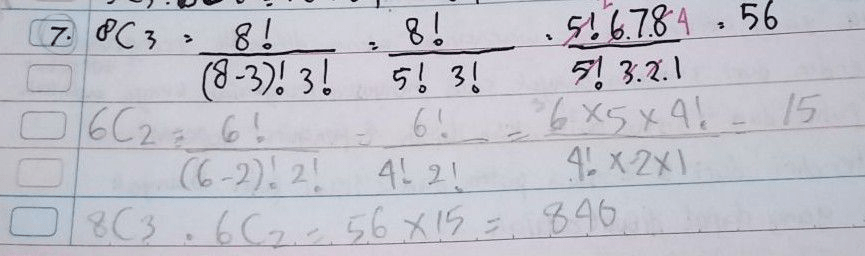 7. 8C3 = 8! / (8-3)! 3! = 8! / 5! 3! = 5! 6.7.8 4 / 5! 3.2.1 = 56
6C2 = 6! / (6-2)! 2! = 6! / 4! 2! = 6 × 5 × 4! / 4! × 2 × 1 = 15
8C3 . 6C2 = 56 × 15 = 840